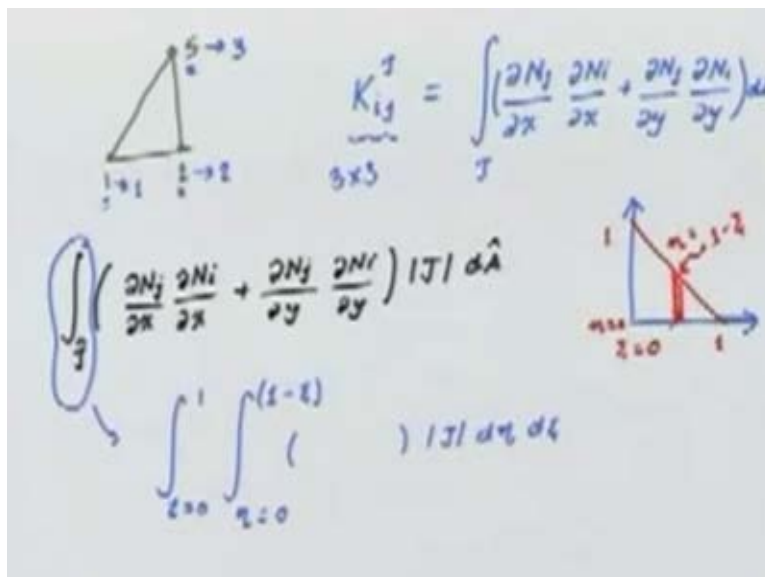 5 → 3
1 → 1
2 → 2
K_{ij}^{J} = ∫_{J} (∂Nj/∂x ∂Ni/∂x + ∂Nj/∂y ∂Ni/∂y) d
3x3
∫_{Ĵ} (∂Nj/∂x ∂Ni/∂x + ∂Nj/∂y ∂Ni/∂y) |J| dÂ
1
η = 1-ξ
η=0
ξ=0
1
∫_{ξ=0}^{1} ∫_{η=0}^{(1-ξ)} ( ) |J| dη dξ